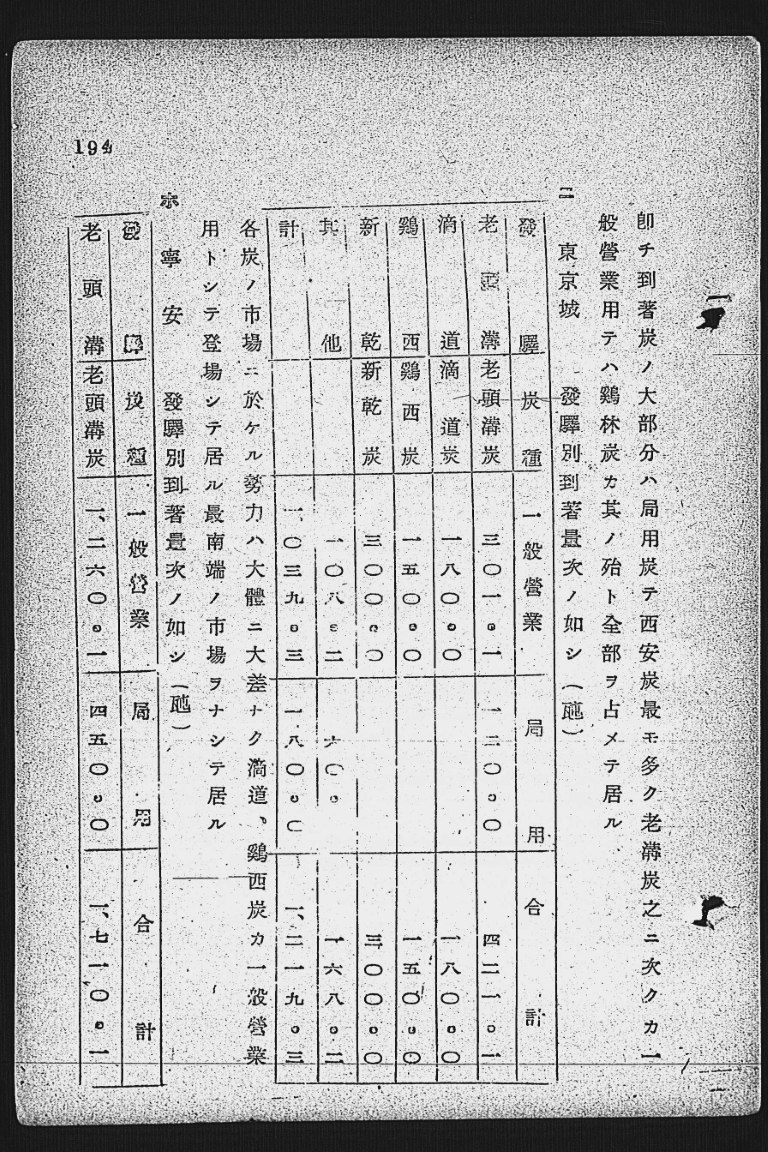 卽チ到著炭ノ大部分ハ局用炭テ西安炭最モ多ク老溝炭之ニ次クカ一
般營業用テハ鷄林炭カ其ノ殆ト全部ヲ占メテ居ル
ニ 東京城 發驛別到著量次ノ如シ(瓲)
發驛 炭種 一般營業 局用 合計
老頭溝 老頭溝炭 三〇一。一 一二〇。〇 四二一。一
滴道 滴道炭 一八〇。〇 一八〇。〇
鷄西 鷄西炭 一五〇。〇 一五〇。〇
新乾 新乾炭 三〇〇。〇 三〇〇。〇
其他 一〇八。二 六〇。 一六八。二
計 一、〇三九。三 一八〇。〇 一、二一九。三
各炭ノ市場ニ於ケル勢力ハ大體ニ大差ナク滴道、鷄西炭カ一般營業
用トシテ登場シテ居ル最南端ノ市場ヲナシテ居ル
ホ 寧安 發驛別到著量次ノ如シ(瓲)
發驛 炭種 一般營業 局用 合計
老頭溝 老頭溝炭 一、二六〇。一 四五〇。〇 一、七一〇。一
194